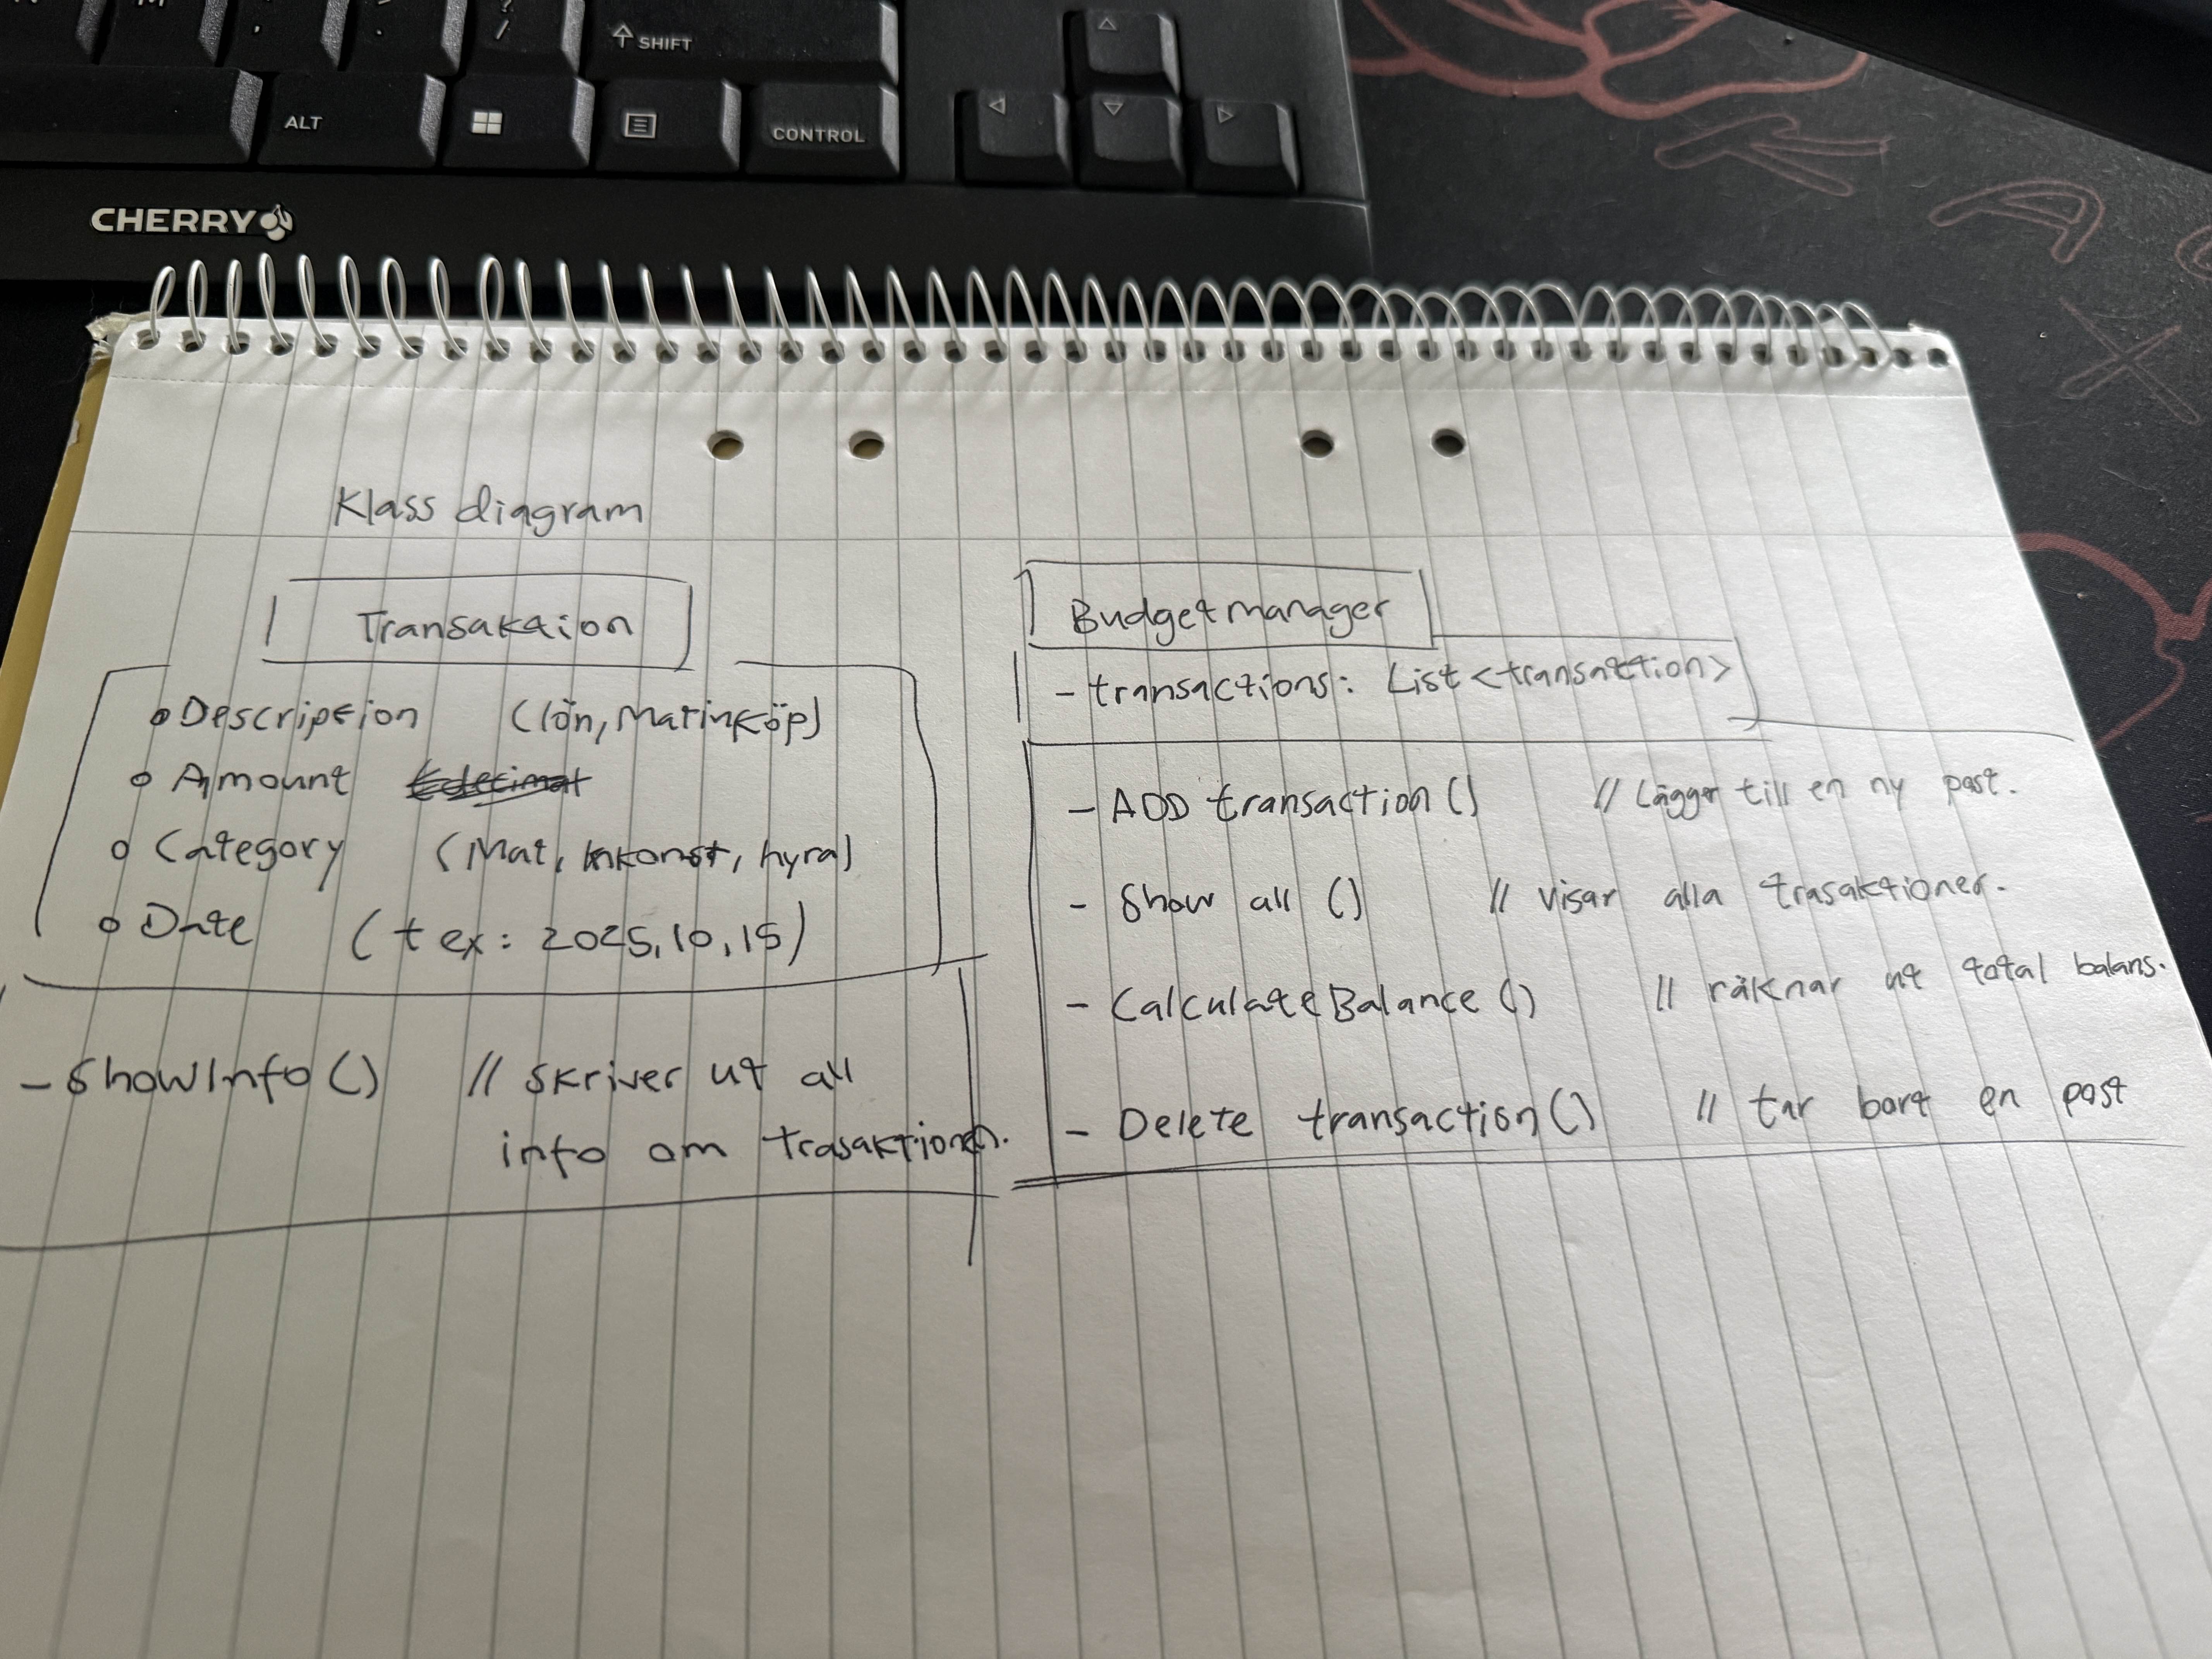 SHIFT
ALT
CONTROL
CHERRY
Klass diagram
Transaktaion
o Description (lön, Matinköp)
o Amount
o Category (Mat, Inkomst, hyra)
o Date (t ex: 2025,10,15)
- ShowInfo() // skriver ut all
info om trasaktionen.
Budgetmanager
- transactions: List<transaction>
- ADD transaction() // Lägger till en ny post.
- Show all () // visar alla trasaktioner.
- CalculateBalance () // räknar ut total balans.
- Delete transaction() // tar bort en post